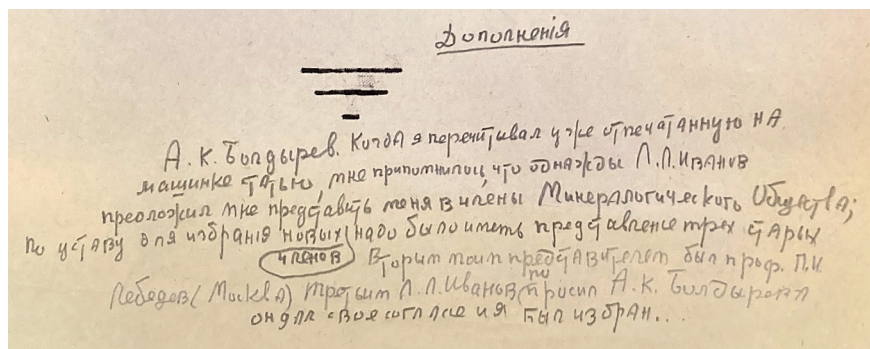 Дополненія
А. К. Болдырев. Когда я перечитывал уже отпечатанную на
машинке статью, мне припомнилось, что однажды Л.Л. Иванов
предложил мне представить меня в члены Минералогического Общества;
по уставу для избранія новых надо было иметь представление трех старых
членов Вторым моим представителем был проф. П.И.
Лебедев (Москва) третьим Л.Л. Иванов по просил А. К. Болдырева
он дал свое согласие и я был избран...